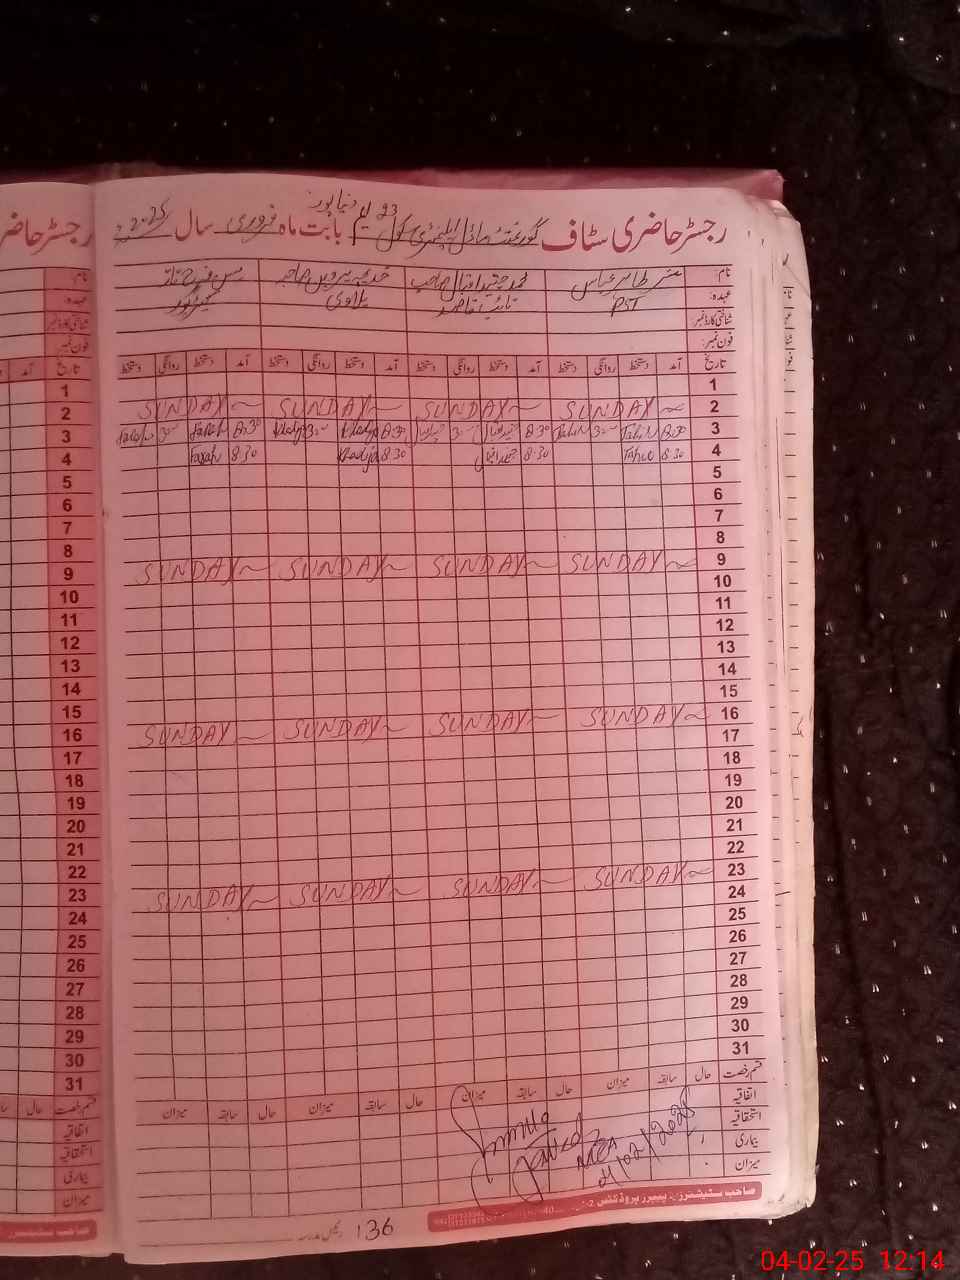 رجسٹر حاضری سٹاف گورنمنٹ ماڈل ایلیمنٹری سکول 23 ایم دنیا پور بابت ماہ فروری سال 2025
نام: مسٹر طاہر عباس محمد جمشید اقبال صاحب خدیجہ پروین صاحبہ مس فرح ناز
عہدہ: PST نائب قاصد
شناختی کارڈ نمبر:
فون نمبر:
تاریخ آمد دستخط روانگی دستخط آمد دستخط روانگی دستخط آمد دستخط روانگی دستخط آمد دستخط روانگی دستخط
1
2 SUNDAY SUNDAY SUNDAY SUNDAY
3 8:30 Tahir 3:00 Tahir 8:30 3:00 8:30 Khadija 3:00 Khadija 8:30 Farah 3:00 Farah
4 8:30 Tahir 8:30 8:30 Khadija 8:30 Farah
5
6
7
8
9 SUNDAY SUNDAY SUNDAY SUNDAY
10
11
12
13
14
15
16 SUNDAY SUNDAY SUNDAY SUNDAY
17
18
19
20
21
22
23 SUNDAY SUNDAY SUNDAY SUNDAY
24
25
26
27
28
29
30
31
قسم رخصت حال سابقہ میزان حال سابقہ میزان حال سابقہ میزان حال سابقہ میزان
اتفاقیہ
استحقاقیہ
بیماری
میزان
MEA
4/02/2025
صاحب سٹیشنرز پیپرز پروڈکٹس
136
رجسٹر حاضر
نام:
عہدہ:
شناختی کارڈ نمبر:
فون نمبر:
تاریخ آمد
1
2
3
4
5
6
7
8
9
10
11
12
13
14
15
16
17
18
19
20
21
22
23
24
25
26
27
28
29
30
31
قسم رخصت حال
اتفاقیہ
استحقاقیہ
بیماری
میزان
صاحب سٹیشنرز
04-02-25 12:14